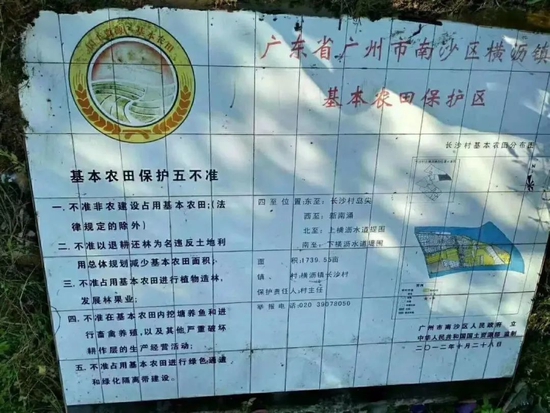 广东省广州市南沙区横沥镇
基本农田保护区
长沙村基本农田分布图
基本农田保护五不准
一、不准非农建设占用基本农田;(法
律规定的除外)
二、不准以退耕还林为名违反土地利
用总体规划减少基本农田面积;
三、不准占用基本农田进行植物造林,
发展林果业;
四、不准在基本农田内挖塘养鱼和进
行畜禽养殖,以及其他严重破坏
耕作层的生产经营活动;
五、不准占用基本农田进行绿色通道
和绿化隔离带建设。
四至位置:东至:长沙村岛尖
西至:新南涌
北至:上横沥水道堤围
南至:下横沥水道堤围
面 积:1739.55亩
镇、 村:横沥镇长沙村
保护责任人:村主任
举报电话:020 39078050
广州市南沙区人民政府 立
中华人民共和国国土资源部 监制
二〇一二年十月二十八日